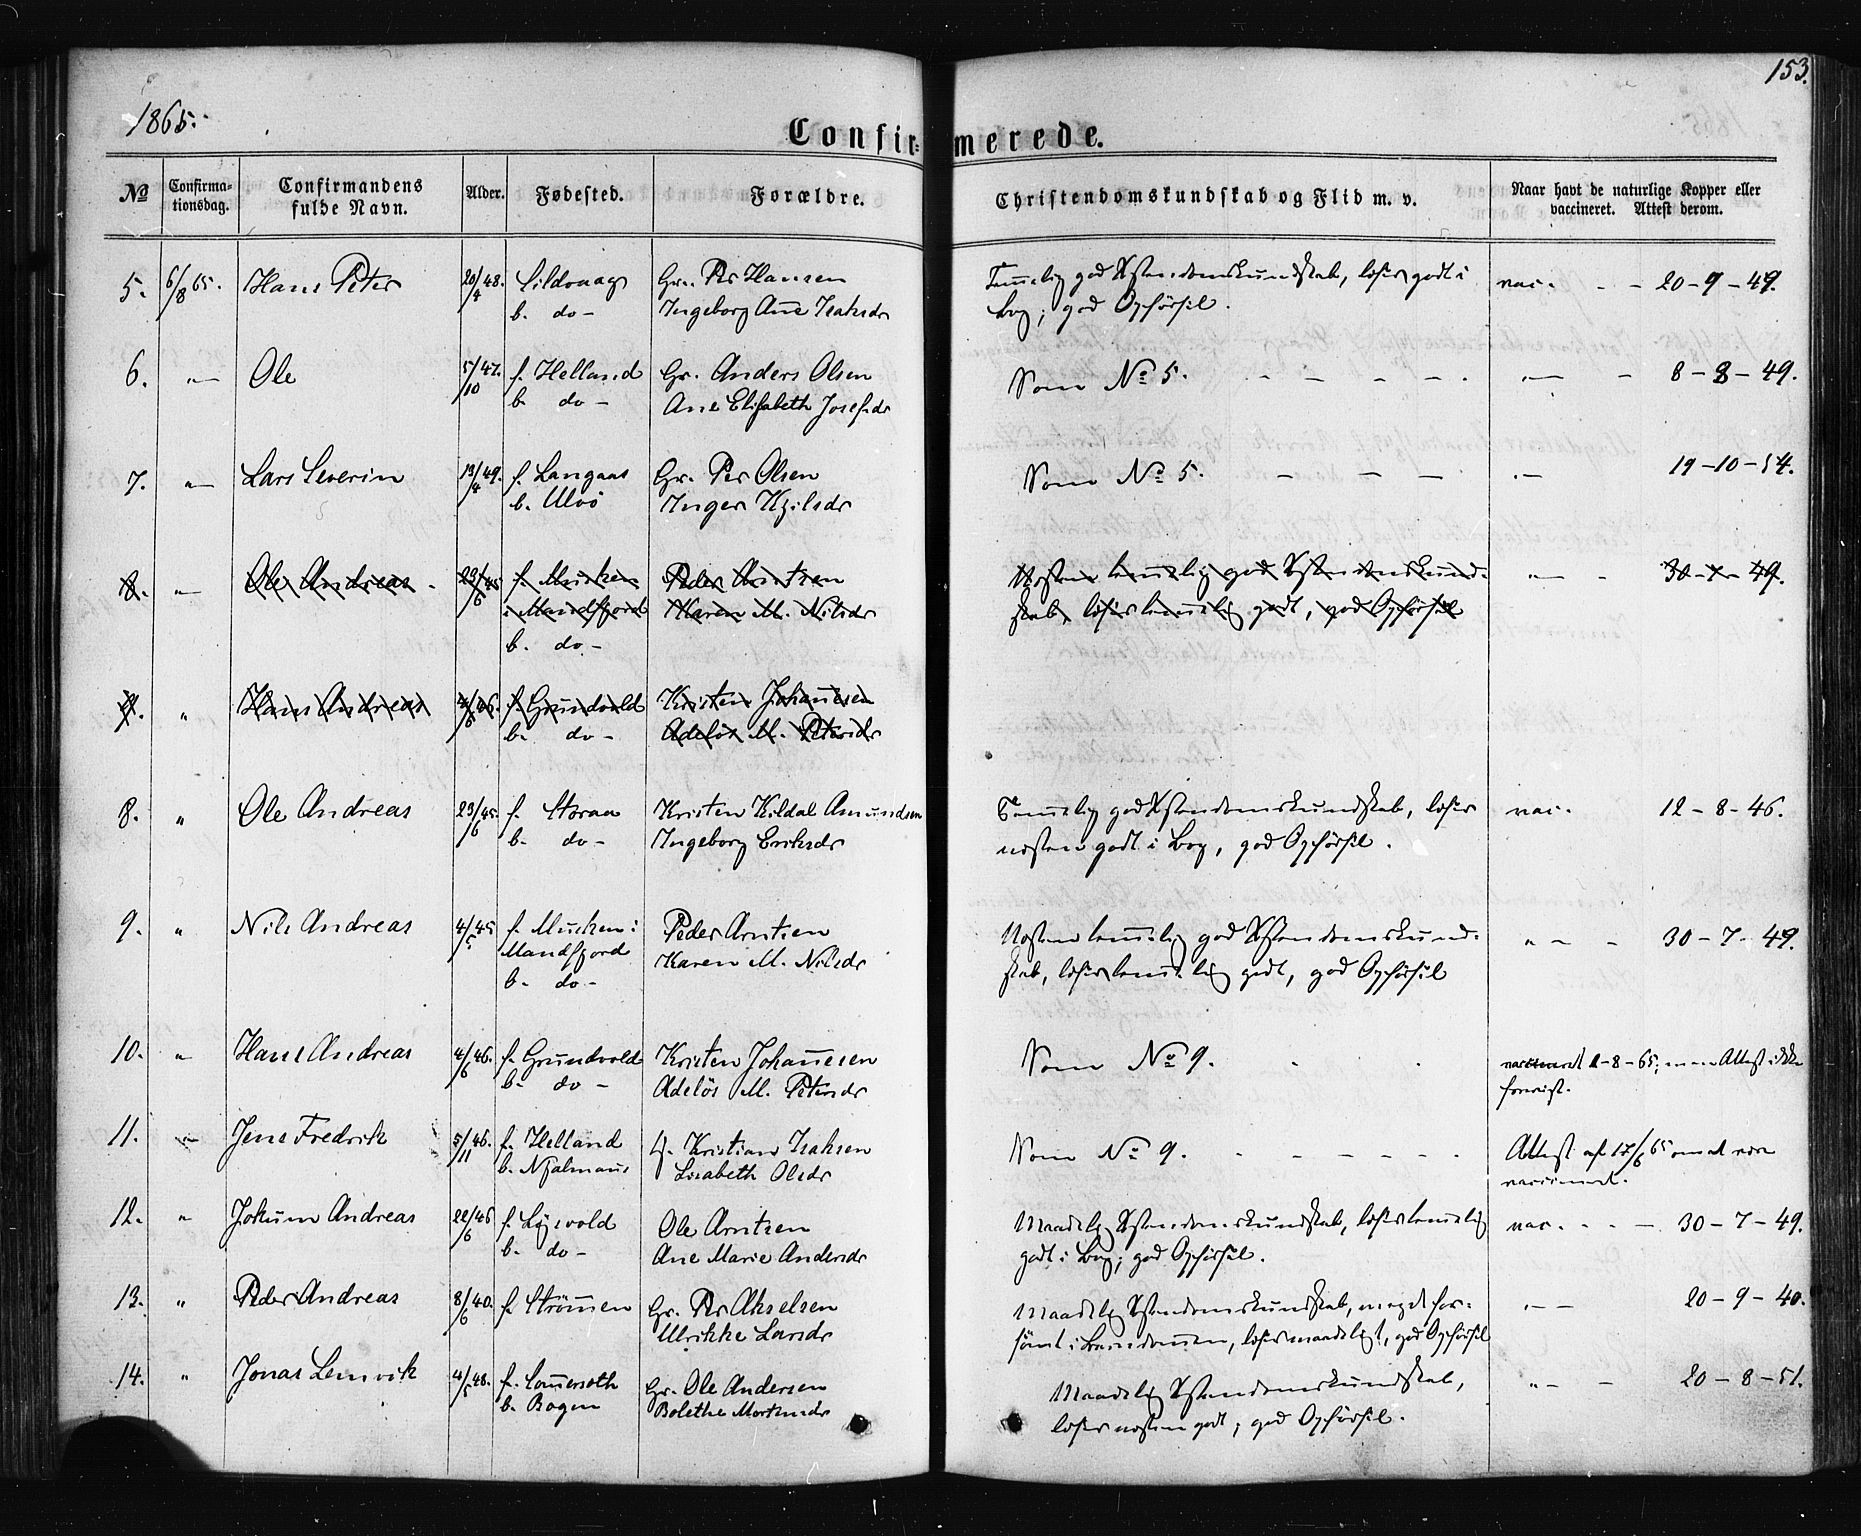 153.
1865.
Confirmerede.
№ Confirmationsdag. Confirmandens fulde Navn. Alder. Fødested. Forældre. Christendomskundskab og Flid m. v. Naar havt de naturlige Kopper eller vaccineret. Attest derom.
5. 6/8 65. Hans Peter 20/4 48. Sildvaag Gr. Per Hansen Temmelig god Xstendomskundskab, læser godt i vac. - - 20-9-49.
b. do - Ingeborg Ane Isaksdr Bog; god Opførsel.
6. " Ole 5/10 47. f. Helland Gr. Anders Olsen Som № 5. - - - - - " - 8-8-49.
b. do - Ane Elisabeth Josefsdr
7. " Lars Severin 13/4 49. f. Langaas Gr. Per Olsen Som № 5. - - - - " 19-10-54.
b. Ulvö Inger Kjilsdr
8. " Ole Andreas 23/6 45 f. Musken Peder Arntzen Næsten temmelig god Xstendomskund- " - 30-7-49.
i Mandfjord Karen M. Nilsdr skab, læser temmelig godt, god Opførsel
b. do -
9. " Hans Andreas 4/6 46. f. Grundvold Kristen Johannesen
b. do - Adelös M. Petersdr
8. " Ole Andreas 23/6 45. f. Storaa Kristen Kildal Amundsen Temmelig god Xstendomskundskab, læser vac. 12-8-46.
b. do - Ingeborg Eriksdr næsten godt i Bog, god Opførsel.
9. " Nils Andreas 4/5 45 f. Musken i Peder Arntsen Næsten temmelig god Xstendomskund- " - - 30-7-49.
Mandfjord Karen M. Nilsdr skab, læser temmelig godt, god Opførsel
b. do -
10. " Hans Andreas 4/6 46. f. Grundvold Kristen Johannesen Som № 9. vaccineret 1-8-65; men Attest ikke
b. do - Adelös M. Petersdr foreviist.
11. " Jens Fredrik 5/11 46. f. Helland Kristian Isaksen Som № 9. - - - - - - Attest af 17/6 65 om at være
b. Njalmans Lisabeth Olsdr vaccineret.
12. " Jokum Andreas 22/6 46 f. Ligvold Ole Arntzen Maadelig Xstendomskundskab, læser temmelig vac. - - - 30-7-49.
b. do - Ane Marie Andersdr godt i Bog; god Opførsel.
13. " Peder Andreas 8/6 40. f. Strömmen Gr. Per Akselsen Maadelig Xstendomskundskab, meget for- " - 20-9-40.
Ulrikke Larsdr sömt i Barndommen, læser maadeligt, god Opførsel
14. " Jonas Lemvik 4/5 48. f. Sommerseth Gr. Ole Andersen Maadelig Xstendomskundskab, " - - 20-8-51.
b. Bogen Bolethe Mortensdr læser næsten godt; god Opførsel.